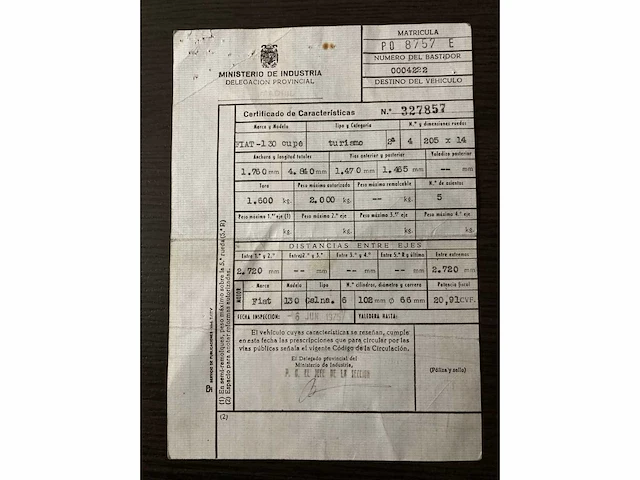 MATRICULA
PO 8757 E
NUMERO DEL BASTIDOR
0004222
DESTINO DEL VEHICULO
MINISTERIO DE INDUSTRIA
DELEGACION PROVINCIAL
Certificado de Características N.º 327857
Marca y Modelo Tipo y Categoría N.º y dimensiones ruedas
FIAT-130 cupe turismo 2ª 4 205 x 14
Anchura y longitud totales Vías anterior y posterior Voladizo posterior
1.760 mm 4.840 mm 1.470 mm 1.465 mm -- mm
Tara Peso máximo autorizado Peso máximo remolcable N.º de asientos
1.600 kg. 2.000 kg. -- kg. 5
Peso máximo 1.er eje (1) Peso máximo 2.º eje Peso máximo 3.er eje Peso máximo 4.º eje
kg. kg. kg. kg.
DISTANCIAS ENTRE EJES
Entre 1.º y 2.º Entre 2.º y 3.º Entre 3.º y 4.º Entre 5.ª R y último Entre extremos
2.720 mm -- mm -- mm -- mm 2.720 mm
MOTOR
Marca Modelo Tipo N.º cilindros, diámetro y carrera Potencia fiscal
Fiat 130 Galna. 6 102 mm 66 mm 20,91 CVF.
FECHA INSPECCION: -6 JUN 1979 VALEDERA HASTA:
El vehículo cuyas características se reseñan, cumple
en esta fecha las prescripciones que para circular por las
vías públicas señala el vigente Código de la Circulación.
El Delegado provincial del
Ministerio de Industria,
P. O. EL JEFE DE LA SECCION
(Póliza y sello)
(1) En semi-remolques, peso máximo sobre la 5.ª rueda (5.ª R)
(2) Espacio para anotar reformas autorizadas.
(2)